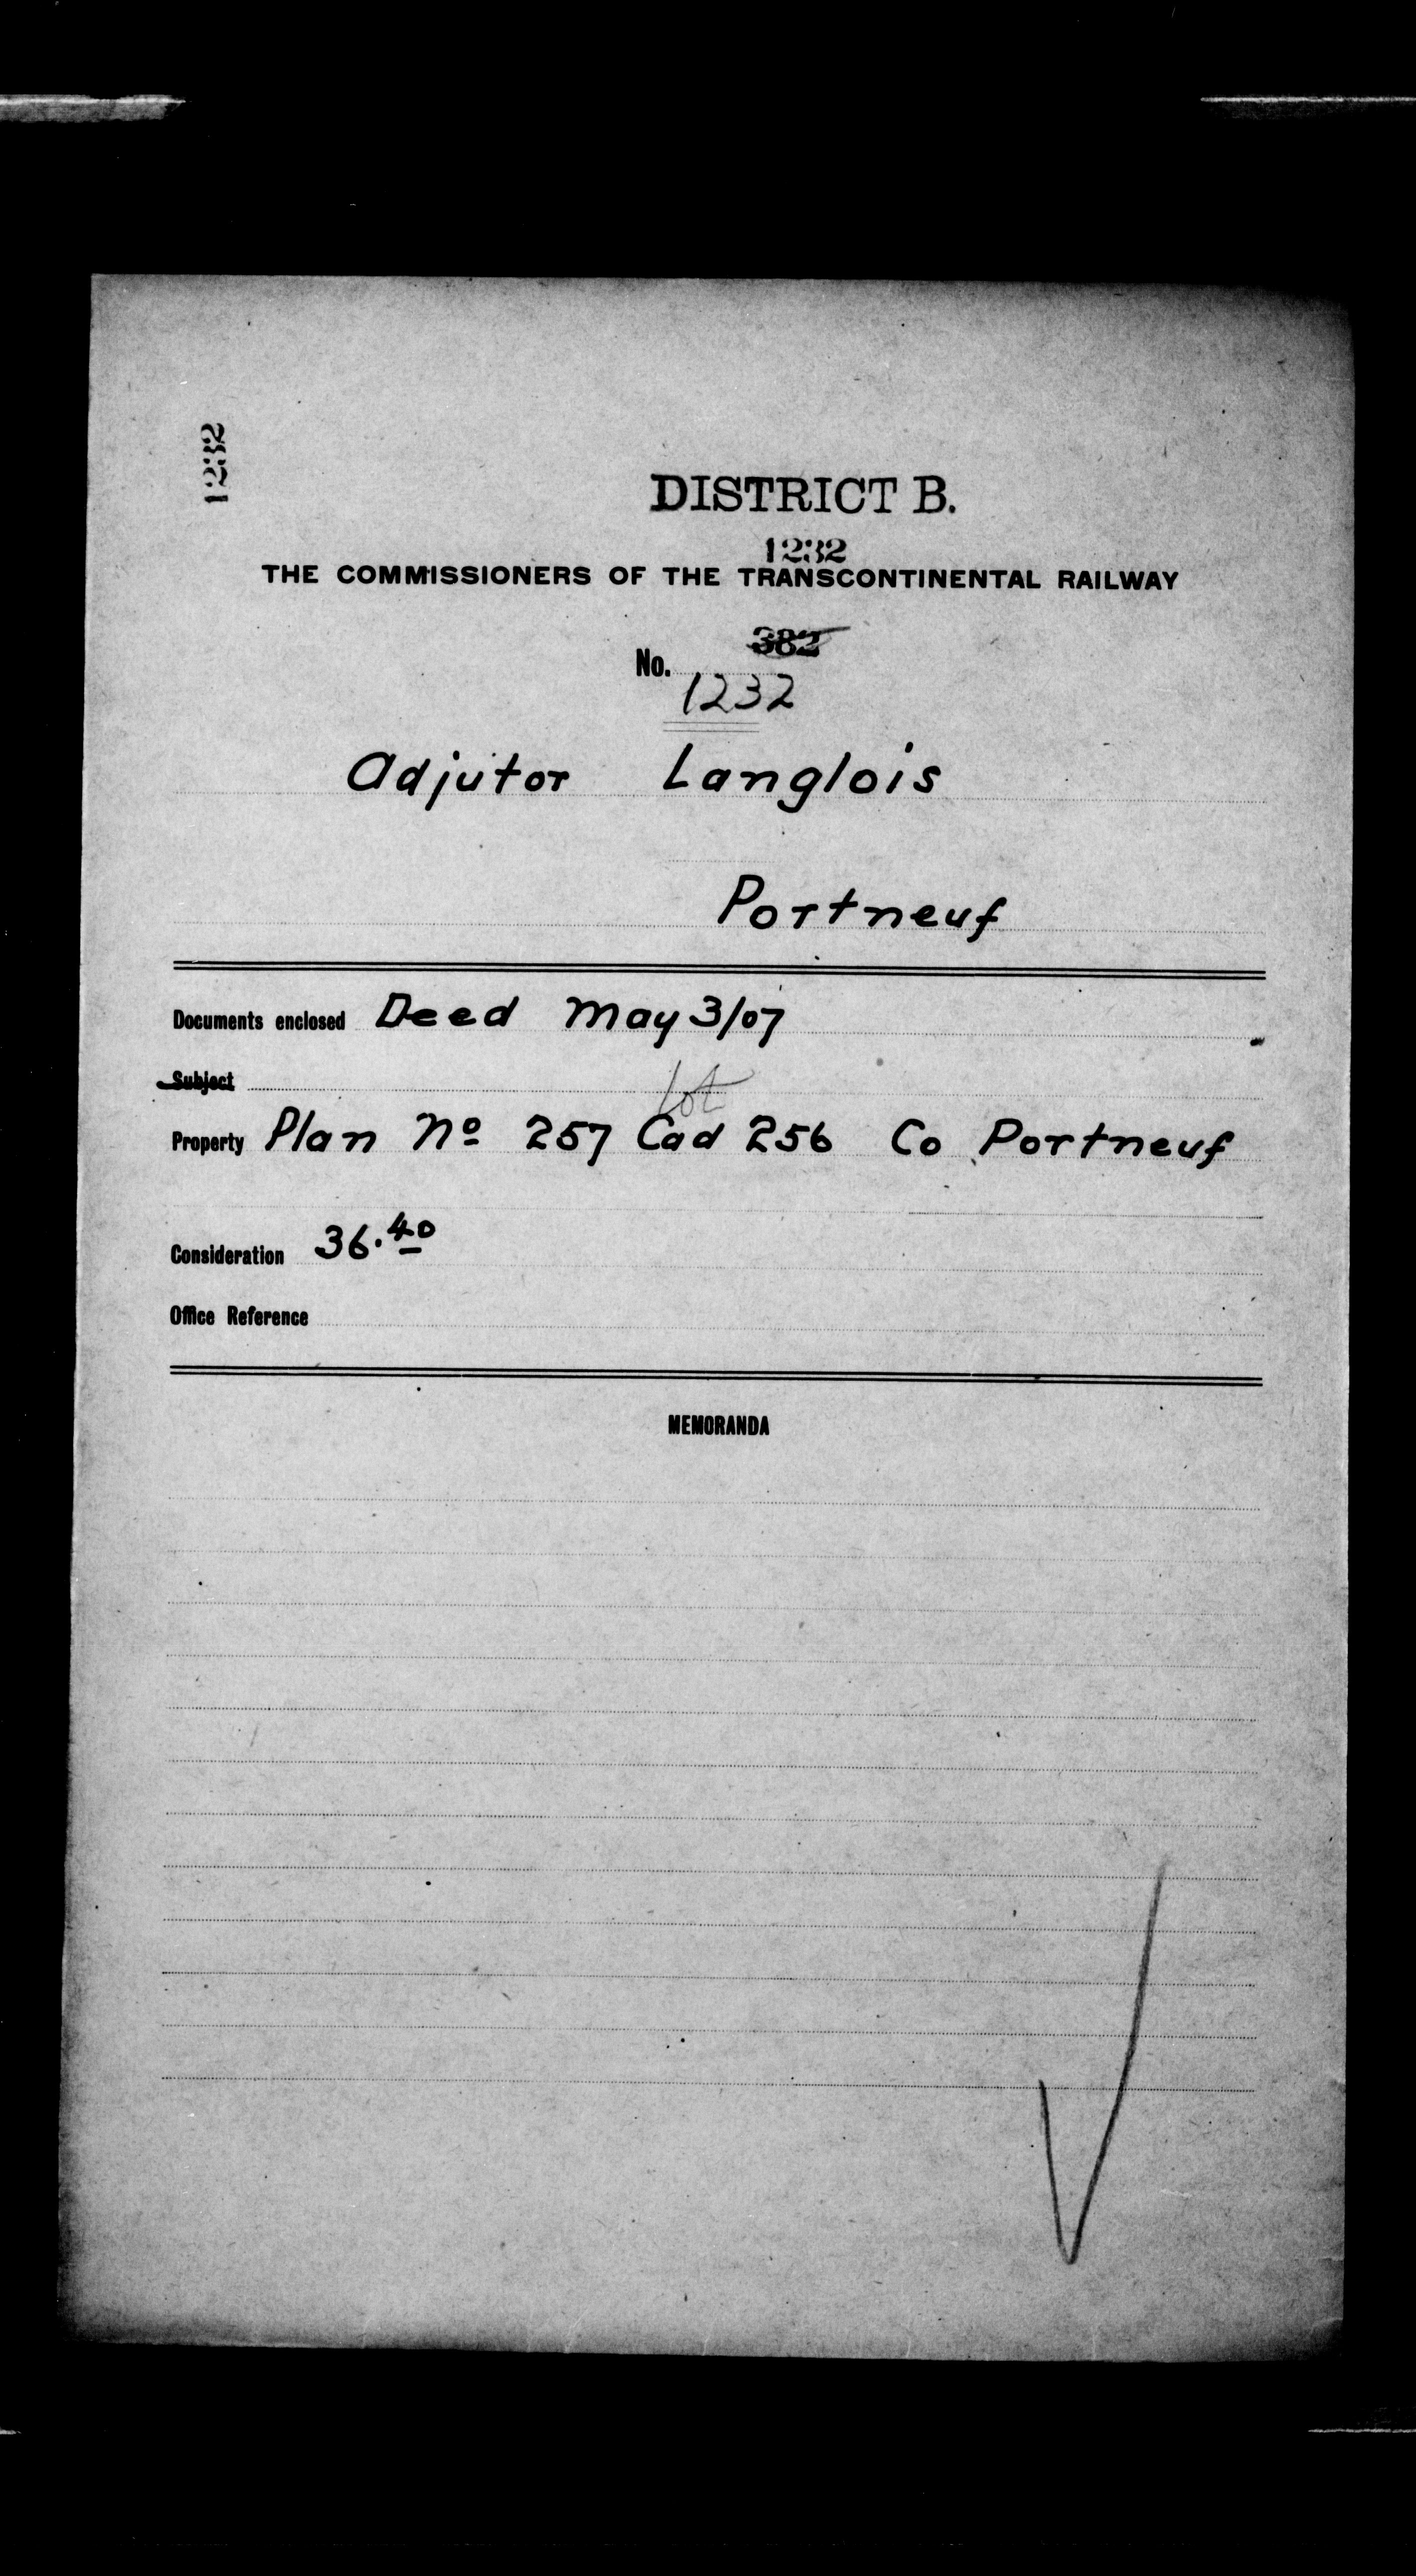 1232
DISTRICT B.
1232
THE COMMISSIONERS OF THE TRANSCONTINENTAL RAILWAY
382
No.
1232
Adjutor Langlois
Portneuf
Documents enclosed Deed May 3/07
Subject
lot
Property Plan No 257 Cad 256 Co Portneuf
Consideration 36.40
Office Reference
MEMORANDA